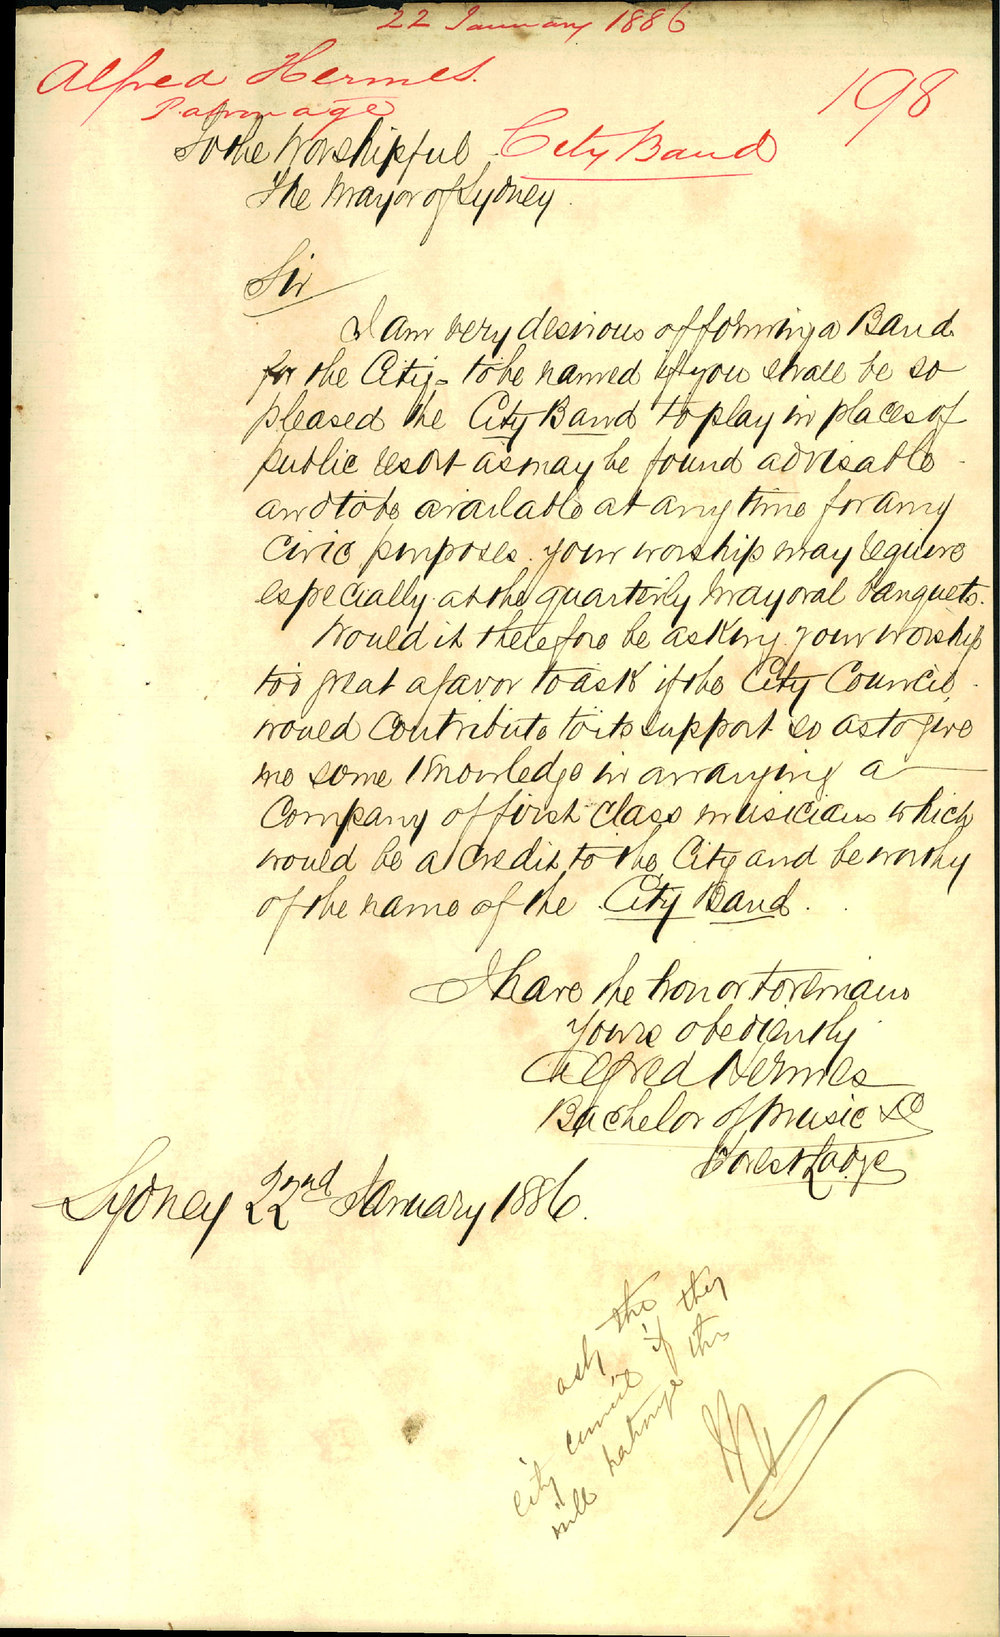 22 January 1886
Alfred Hermes.
Patronage
198
City Band
To the Worshipful
The Mayor of Sydney.
Sir
I am very desirous of forming a Band
for the City - to be named if you shall be so
pleased the City Band to play in places of
public resort as may be found advisable
and to be available at any time for any
civic purposes your worship may require
especially at the quarterly Mayoral Banquets.
Would it therefore be asking your worship
too great a favor to ask if the City Council
would contribute to its support so as to give
me some knowledge in arranging a
Company of first class musicians which
would be a credit to the City and be worthy
of the name of the City Band.
I have the honor to remain
Yours obediently
Alfred Hermes
Bachelor of Music &c
Forest Lodge
Sydney 22nd January 1886.
ask the
city council if they
will patronize this